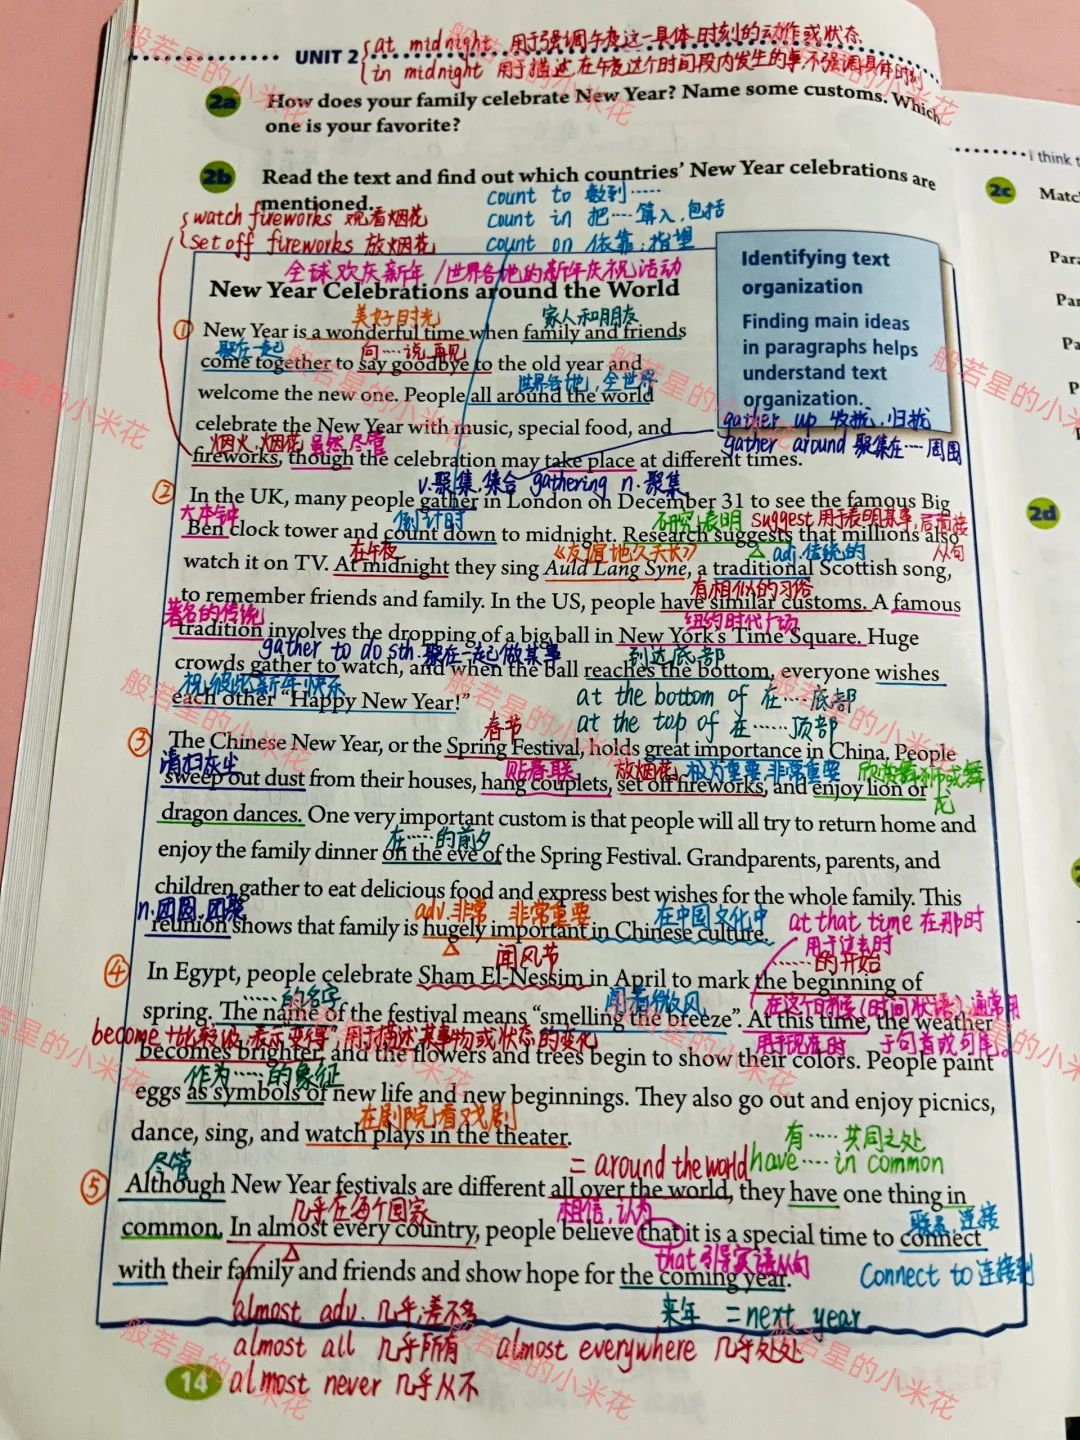 UNIT 2
at midnight 用于强调午夜这一具体时刻的动作或状态
in midnight 用于描述在午夜这个时间段内发生的事,不强调具体时刻
2a How does your family celebrate New Year? Name some customs. Which
one is your favorite?
I think t
2b Read the text and find out which countries' New Year celebrations are
mentioned.
2c Matc
count to 数到……
watch fireworks 观看烟花
count in 把…算入,包括
set off fireworks 放烟花
count on 依靠;指望
Para
Par
Pa
P
Identifying text
organization
Finding main ideas
in paragraphs helps
understand text
organization.
全球欢庆新年/世界各地的新年庆祝活动
New Year Celebrations around the World
美好时光 家人和朋友
① New Year is a wonderful time when family and friends
聚在一起 向…说再见
come together to say goodbye to the old year and
世界各地,全世界
welcome the new one. People all around the world
celebrate the New Year with music, special food, and
gather up 收拢,归拢
gather around 聚集在…周围
烟火,烟花 虽然,尽管
fireworks, though the celebration may take place at different times.
v.聚集,集合 gathering n.聚集
② In the UK, many people gather in London on December 31 to see the famous Big
大本钟 倒计时 研究表明 suggest用于表明某事,后面接从句
Ben clock tower and count down to midnight. Research suggests that millions also
2d
在午夜 《友谊地久天长》 adj.传统的
watch it on TV. At midnight they sing Auld Lang Syne, a traditional Scottish song,
有相似的习俗
to remember friends and family. In the US, people have similar customs. A famous
著名的传统 纽约时代广场
tradition involves the dropping of a big ball in New York's Time Square. Huge
gather to do sth.聚在一起做某事 到达底部
crowds gather to watch, and when the ball reaches the bottom, everyone wishes
祝彼此新年快乐
each other "Happy New Year!"
at the bottom of 在…底部
at the top of 在……顶部
春节
③ The Chinese New Year, or the Spring Festival, holds great importance in China. People
清扫灰尘 贴春联 放烟花 极为重要,非常重要 欣赏舞狮或舞龙
sweep out dust from their houses, hang couplets, set off fireworks, and enjoy lion or
dragon dances. One very important custom is that people will all try to return home and
在……的前夕
enjoy the family dinner on the eve of the Spring Festival. Grandparents, parents, and
children gather to eat delicious food and express best wishes for the whole family. This
n.团圆,团聚 adv.非常 非常重要 在中国文化中
reunion shows that family is hugely important in Chinese culture.
at that time 在那时
用于过去时
闻风节 ……的开始
④ In Egypt, people celebrate Sham El-Nessim in April to mark the beginning of
……的名字 闻着微风 在这个时刻(时间状语),通常用
spring. The name of the festival means "smelling the breeze". At this time, the weather
become+比较级,表示"变得",用于描述某事物或状态的变化 用于现在时 于句首或句尾。
becomes brighter, and the flowers and trees begin to show their colors. People paint
作为……的象征
eggs as symbols of new life and new beginnings. They also go out and enjoy picnics,
在剧院看戏剧
dance, sing, and watch plays in the theater.
有……共同之处
尽管 = around the world have…in common
⑤ Although New Year festivals are different all over the world, they have one thing in
几乎在每个国家 相信,认为 联系,连接
common. In almost every country, people believe that it is a special time to connect
that引导宾语从句
with their family and friends and show hope for the coming year.
Connect to 连接到
almost adv.几乎;差不多 来年 = next year
almost all 几乎所有 almost everywhere 几乎处处
14 almost never 几乎从不
般若星的小米花